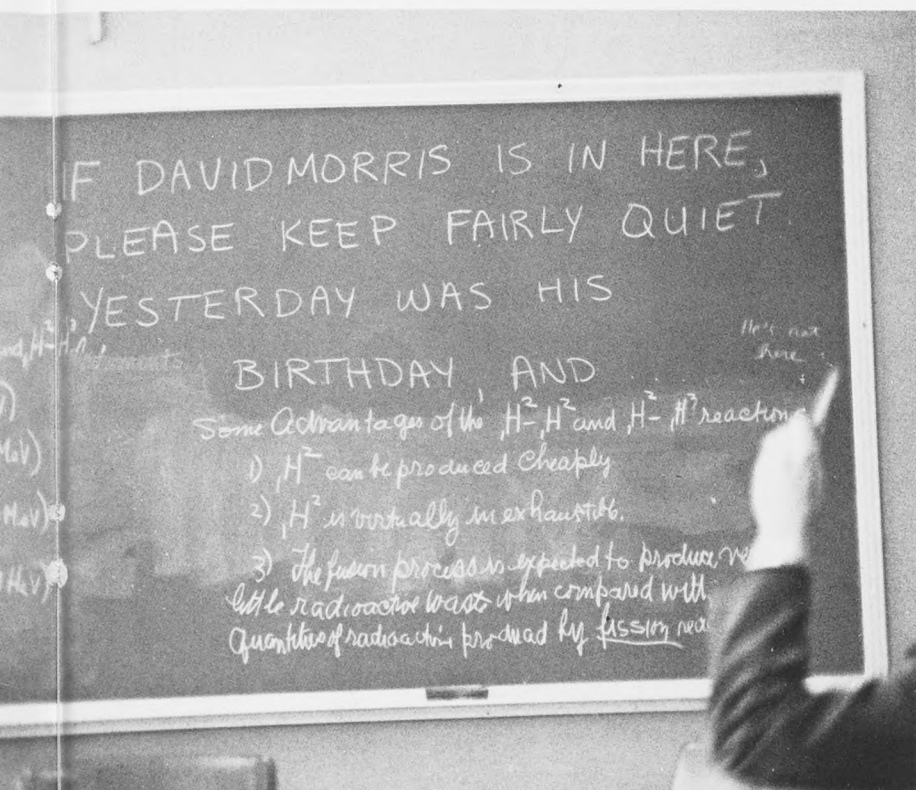 IF DAVID MORRIS IS IN HERE,
PLEASE KEEP FAIRLY QUIET.
YESTERDAY WAS HIS
BIRTHDAY, AND
He's not
here
Some Advantages of the ₁H²-₁H² and ₁H²-₁H³ reactions
1) ₁H² can be produced cheaply
2) ₁H² is virtually inexhaustible.
3) The fusion process is expected to produce
little radioactive waste when compared with
quantities of radioactive produced by fission
MeV)
MeV)
MeV)